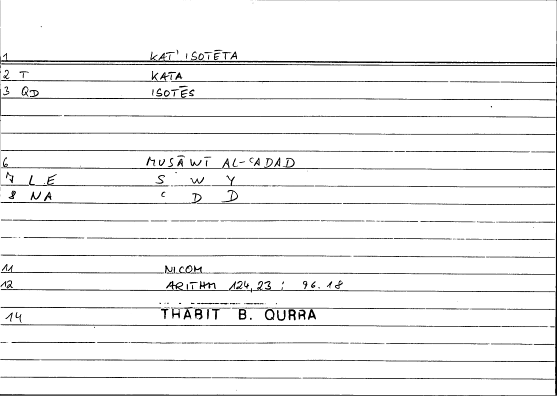 1 KAT' ISOTĒTA
2 T KATA
3 QD ISOTĒS
6 MUSĀWĪ AL-CADAD
7 L E S W Y
8 NA C D D
11 NICOM
12 ARITHM 124,23 : 96.18
14 THABIT B. QURRA